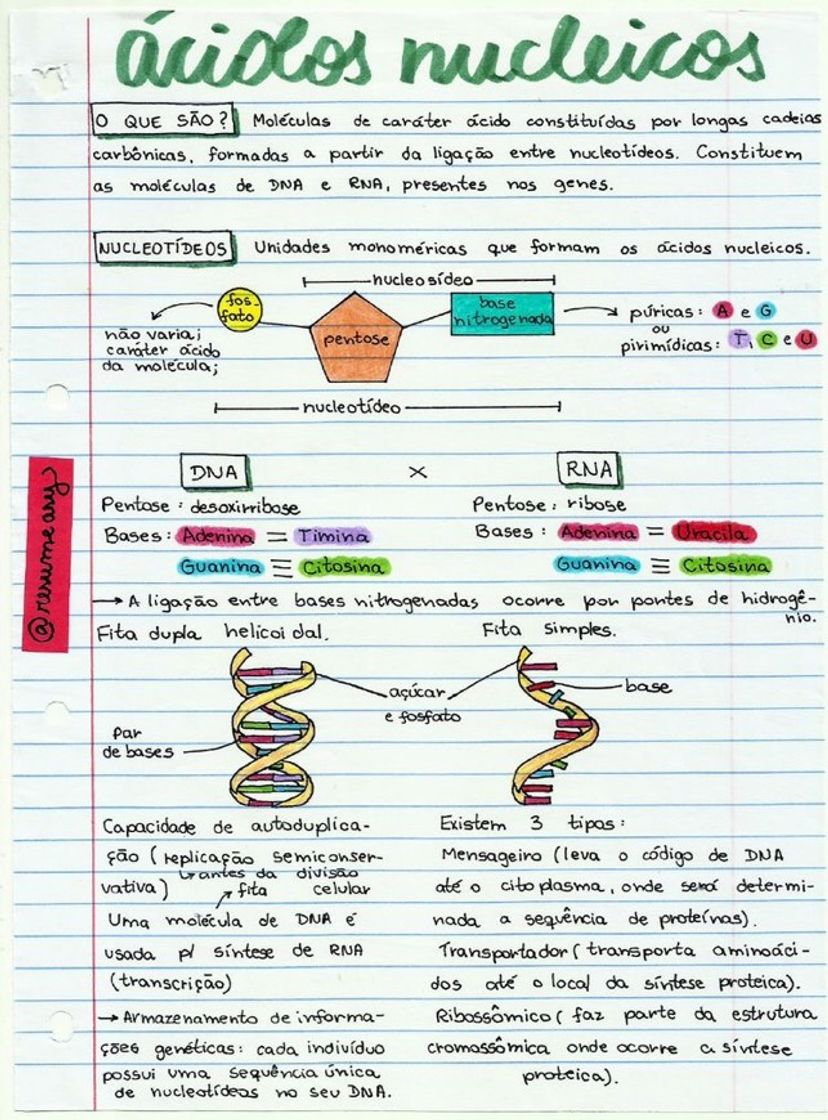 ácidos nucleicos
O QUE SÃO? Moléculas de caráter ácido constituídas por longas cadeias
carbônicas, formadas a partir da ligação entre nucleotídeos. Constituem
as moléculas de DNA e RNA, presentes nos genes.
NUCLEOTÍDEOS Unidades monoméricas que formam os ácidos nucleicos.
nucleosídeo
fos-
fato
pentose
base
nitrogenada
não varia;
caráter ácido
da molécula;
púricas: A e G
ou
pirimídicas: T, C e U
nucleotídeo
DNA x RNA
Pentose: desoxirribose
Bases: Adenina = Timina
Guanina ≡ Citosina
Pentose: ribose
Bases: Adenina = Uracila
Guanina ≡ Citosina
→ A ligação entre bases nitrogenadas ocorre por pontes de hidrogê-
nio.
Fita dupla helicoidal.
Fita simples.
açúcar
e fosfato
base
Par
de bases
Capacidade de autoduplica-
ção (replicação semiconser-
vativa) ↳ antes da divisão
celular
fita
Uma molécula de DNA é
usada p/ síntese de RNA
(transcrição)
→ Armazenamento de informa-
ções genéticas: cada indivíduo
possui uma sequência única
de nucleotídeos no seu DNA.
Existem 3 tipos:
Mensageiro (leva o código de DNA
até o citoplasma, onde será determi-
nada a sequência de proteínas).
Transportador (transporta aminoáci-
dos até o local da síntese proteica).
Ribossômico (faz parte da estrutura
cromossômica onde ocorre a síntese
proteica).
@resumeary